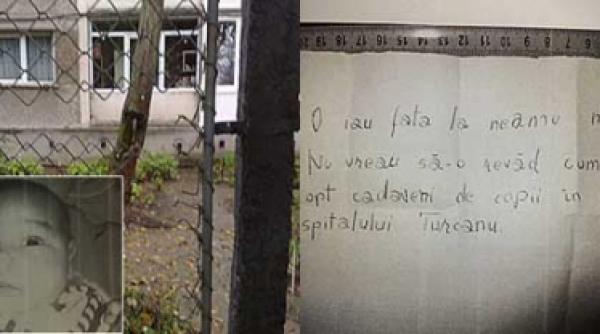 19 18 17 16 15 14 13 12 11 10 9 8 7 6
O iau fata la neamu
Nu vreau să-o revăd cum
opt cadaveri de copii în
spitalului Turcanu.